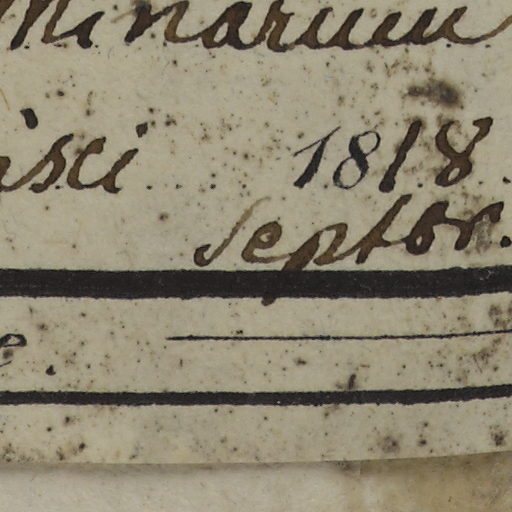 Minarum
isci 1818.
Septbr.
e.